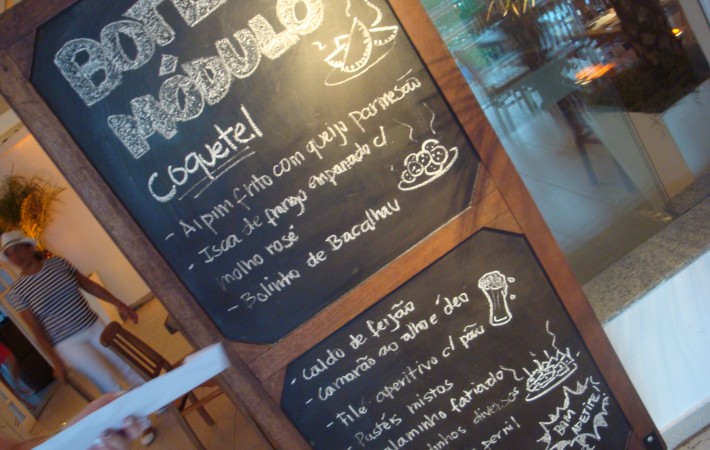 MÓDULO
Coquetel
- Aipim frito com queiju parmesão
- Isca de frango empanado c/
molho rosé
- Bolinho de Bacalhau
- Caldo de feijão
- Camarão ao alho e óleo
- Filé aperitivo c/ pão
- Pastéis mistos
fatiado
diversos
pernil
BOM
APETITE!